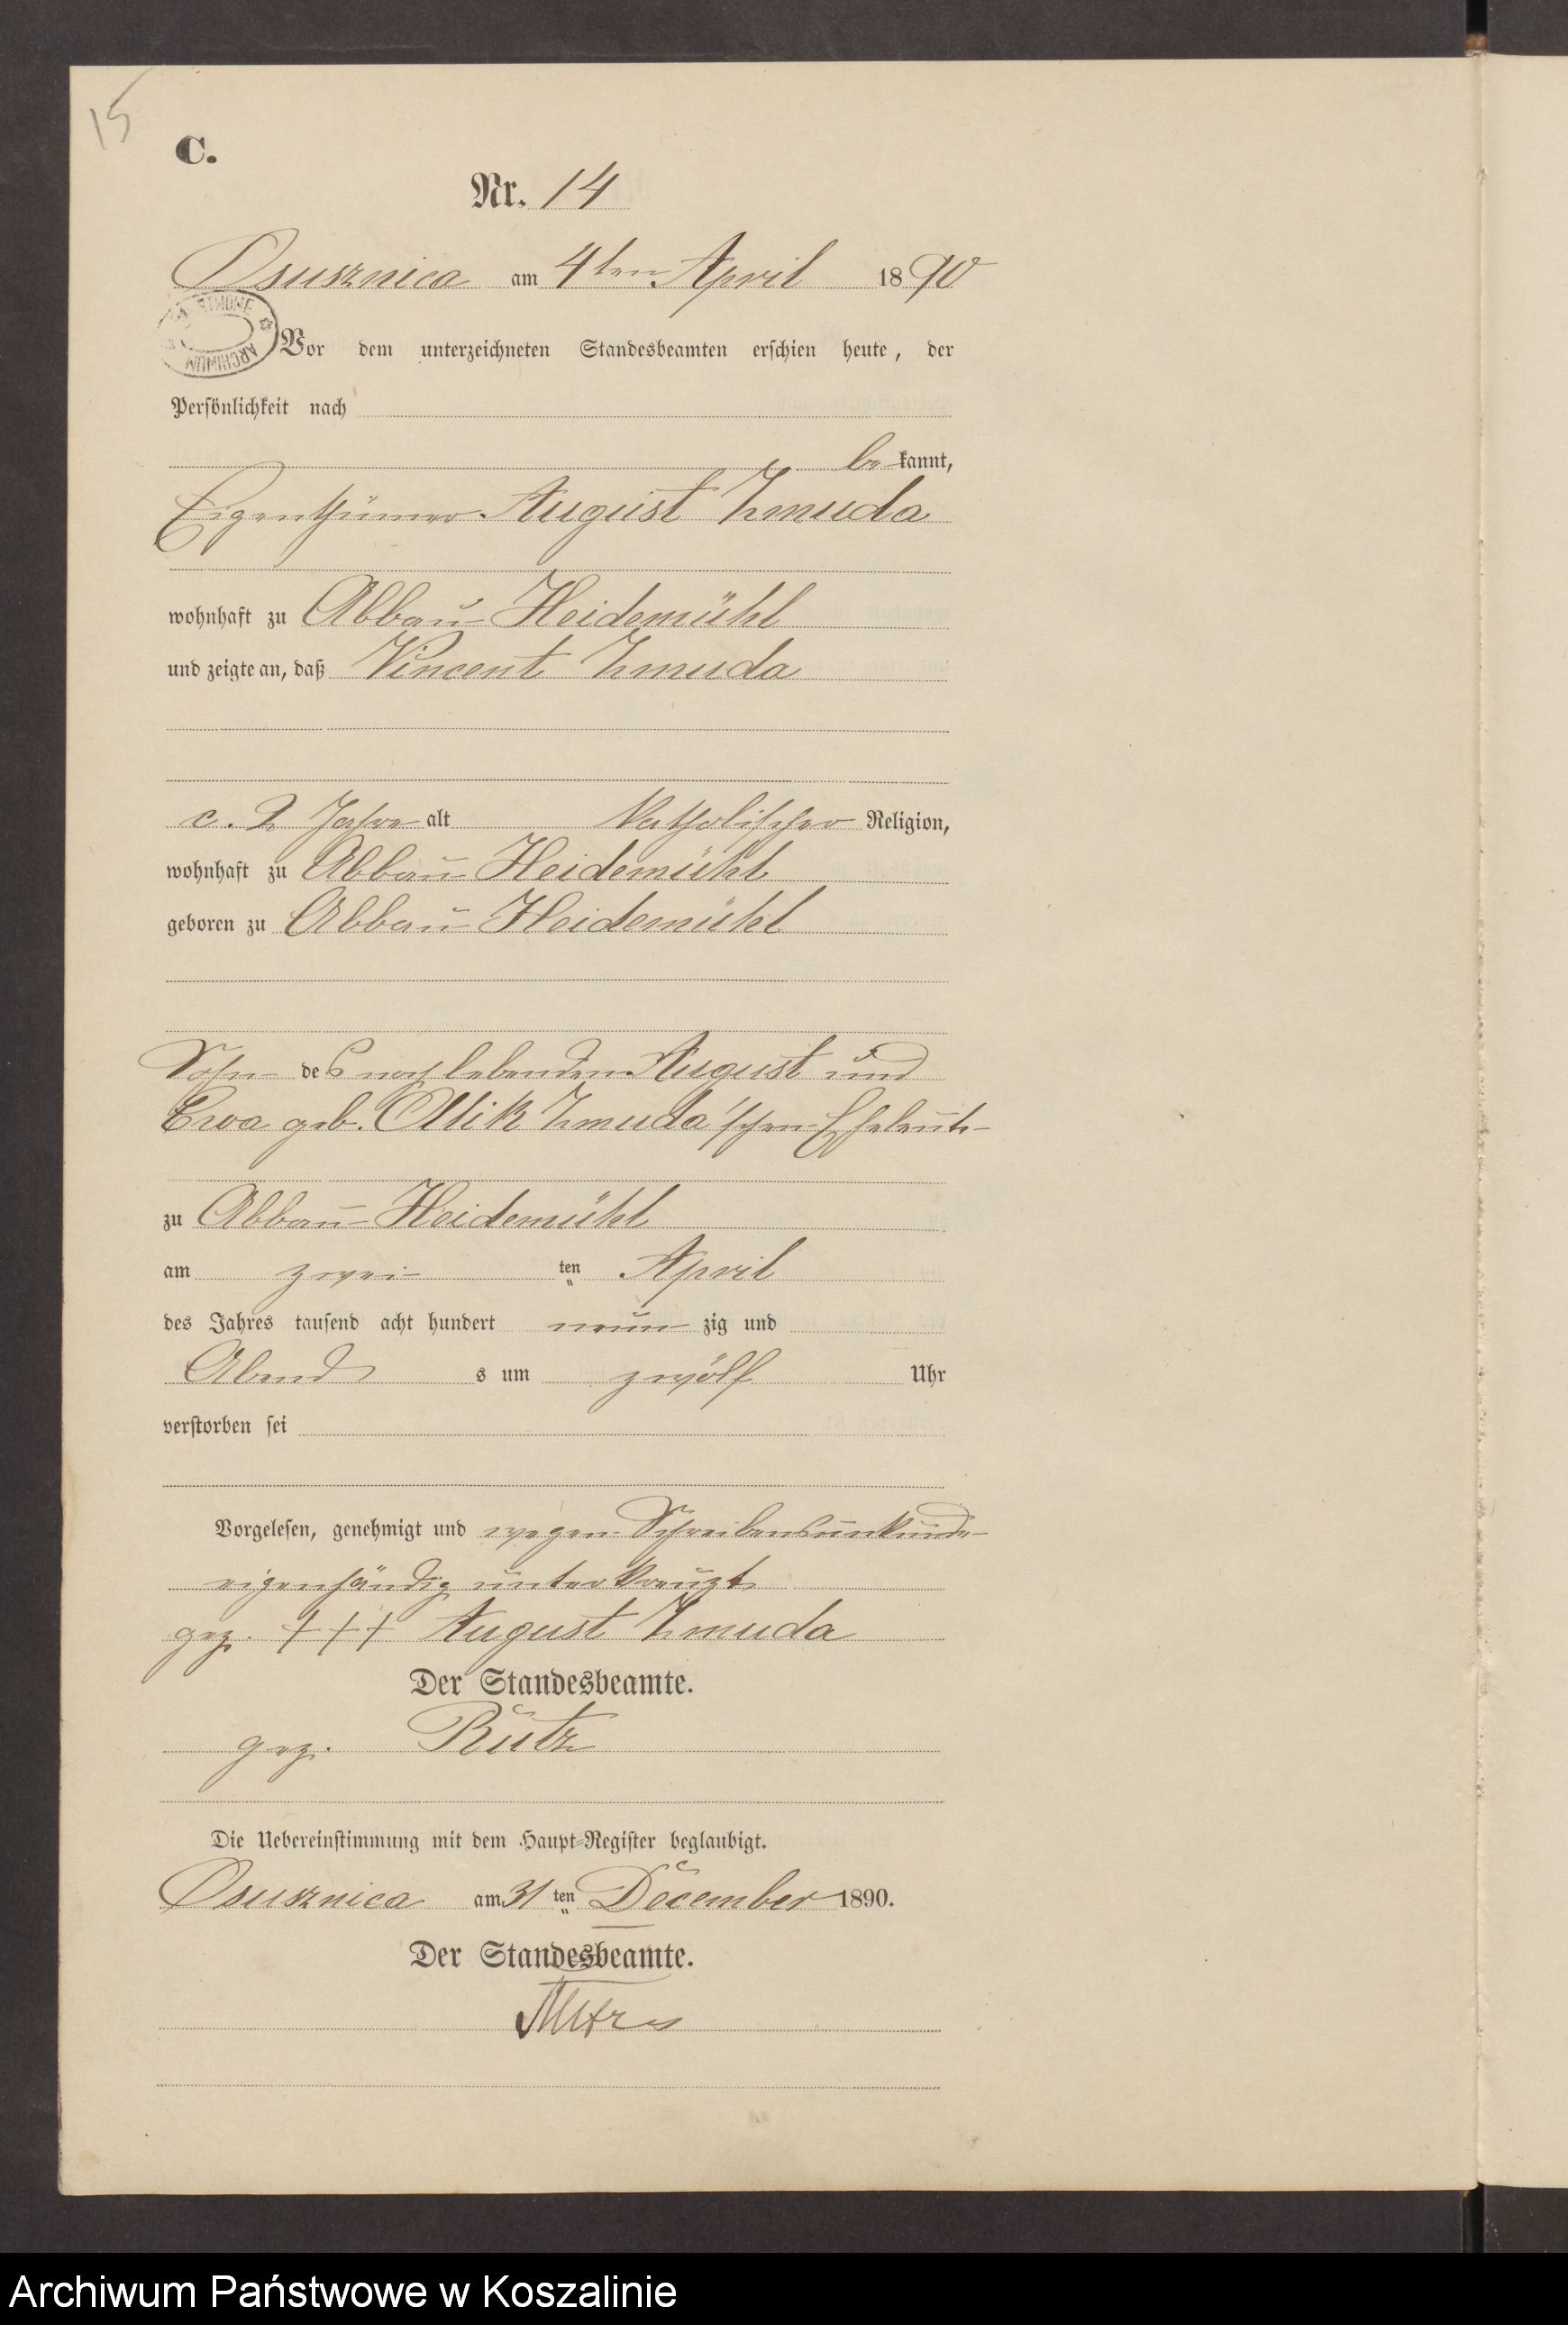 15
C.
Nr. 14
Osusznica am 4ten April 1890
ARCHIWUM
Vor dem unterzeichneten Standesbeamten erschien heute, der
Persönlichkeit nach
be kannt,
Eigenthümer August Zmuda
wohnhaft zu Abbau Heidemühl
und zeigte an, daß Vincent Zmuda
c. 2 Jahre alt katholischer Religion,
wohnhaft zu Abbau Heidemühl
geboren zu Abbau Heidemühl
Sohn des noch lebenden August und
Ewa geb. Ollik Zmuda'schen Eheleute
zu Abbau Heidemühl
am zwei ten April
des Jahres tausend acht hundert neun zig und
Abend s um zwölf Uhr
verstorben sei
Vorgelesen, genehmigt und wegen Schreibensunkunde
eigenhändig unterkreuzt
gez. +++ August Zmuda
Der Standesbeamte.
gez. Rutz
Die Uebereinstimmung mit dem Haupt-Register beglaubigt.
Osusznica am 31 ten December 1890.
Der Standesbeamte.
Archiwum Państwowe w Koszalinie